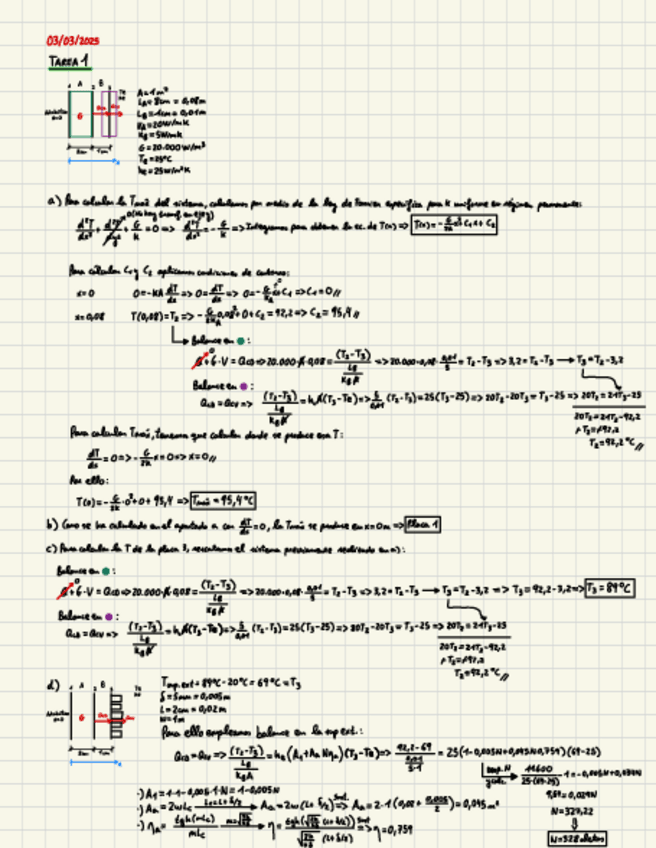 03/03/2025
TAREA 1
A B
A = 1m²
L_A = 8cm = 0,08m
L_B = 1cm = 0,01m
k_A = 20W/mK
k_B = 5W/mK
G = 20.000 W/m³
T_e = 25°C
h_e = 25W/m²K
G
a) Para calcular la Tmáx del sistema, calculamos por medio de la ley de Fourier específica para k uniforme en régimen permanente:
=> Integramos para obtener la ec. de T(x) => T(x) = -G/2k x² + C₁x + C₂
Para calcular C₁ y C₂ aplicamos condiciones de contorno:
x=0 0=-kA dT/dx => 0 = dT/dx => 0 = -G/k_A x + C₁ => C₁ = 0 //
x=0,08 T(0,08) = T₂ => -G/2k_A 0,08² + 0 + C₂ = 92,2 => C₂ = 95,4 //
Balance en :
G·V = Q_CD => 20.000·A·0,08 = (T₂-T₃)/(L_B/k_B A) => 20.000·0,08·0,01/5 = T₂-T₃ => 3,2 = T₂-T₃ → T₃ = T₂-3,2
Balance en :
Q_CD = Q_CV => (T₂-T₃)/(L_B/k_B A) = h_e A(T₃-Te) => 5/0,01 (T₂-T₃) = 25(T₃-25) => 20T₂-20T₃ = T₃-25 => 20T₂ = 21T₃-25
20T₂ = 21T₂-92,2
T₂ = 92,2
T₂ = 92,2 °C //
Para calcular Tmáx, tenemos que calcular donde se produce esa T:
dT/dx = 0 => -G/2k x = 0 => x = 0 //
Por ello:
T(0) = -G/2k·0² + 0 + 95,4 => Tmáx = 95,4°C
b) Como se ha calculado en el apartado a con dT/dx = 0, la Tmáx se produce en x=0m => Placa 1
c) Para calcular la T de la placa 3, rescatamos el sistema previamente realizado en a):
Balance en :
G·V = Q_CD => 20.000·A·0,08 = (T₂-T₃)/(L_B/k_B A) => 20.000·0,08·0,01/5 = T₂-T₃ => 3,2 = T₂-T₃ → T₃ = T₂-3,2 => T₃ = 92,2-3,2 => T₃ = 89°C
Balance en :
Q_CD = Q_CV => (T₂-T₃)/(L_B/k_B A) = h_e A(T₃-Te) => 5/0,01 (T₂-T₃) = 25(T₃-25) => 20T₂-20T₃ = T₃-25 => 20T₂ = 21T₃-25
20T₂ = 21T₂-92,2
T₂ = 92,2
T₂ = 92,2 °C //
d)
A B
G
T sup.ext = 89°C - 20°C = 69°C = T₃
δ = 5mm = 0,005m
L = 2cm = 0,02m
w = 1m
Para ello empleamos balance en la sup ext.:
Q_CD = Q_CV => (T₂-T₃)/(L_B/k_B A) = h_e (A₁ + A_a N η_a)(T₃-Te) => (92,2-69)/(0,01/5·1) = 25(1-0,005N+0,045N0,759)(69-25)
11600/25(69-25) - 1 = -0,005N+0,034N
·) A₁ = 1·1-0,005·1·N = 1-0,005N
·) A_a = 2wLc → A_a = 2w(L+δ/2) => A_a = 2·1(0,02+0,005/2) = 0,045m²
·) η_a = tgh(mLc)/mLc → => η = 0,759
9,54 = 0,029N
N = 327,22
N = 328 aletas